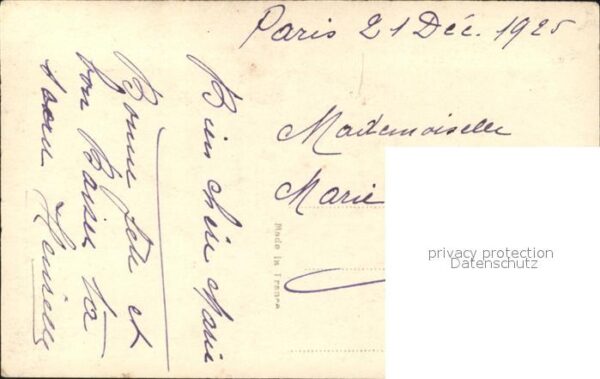 Paris 21 Déc. 1925
Mademoiselle
Marie
Bien chère Marie
Bonne fête et
bon Baiser ta
sœur Henriette
Made in France
privacy protection
Datenschutz